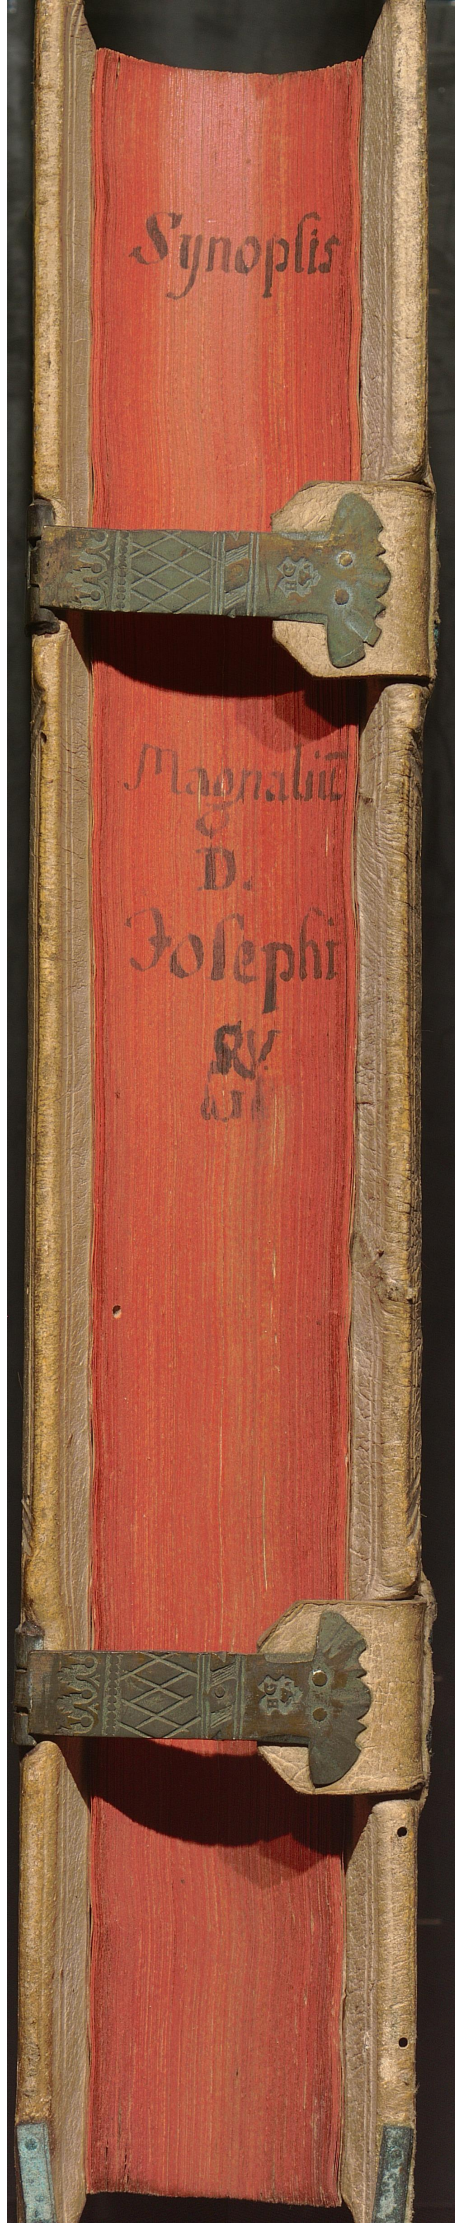 Synopſis
Magnaliū
D.
Joſephi
BG
BG